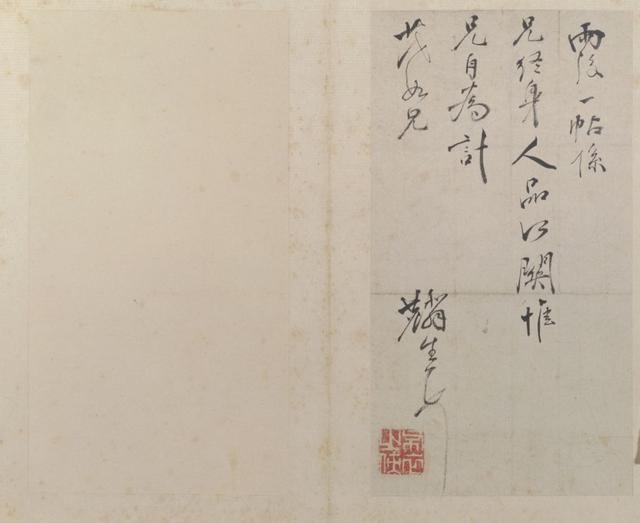 雨後一帖係
兄終身人品所關惟
兄自為計
茂如兄
生